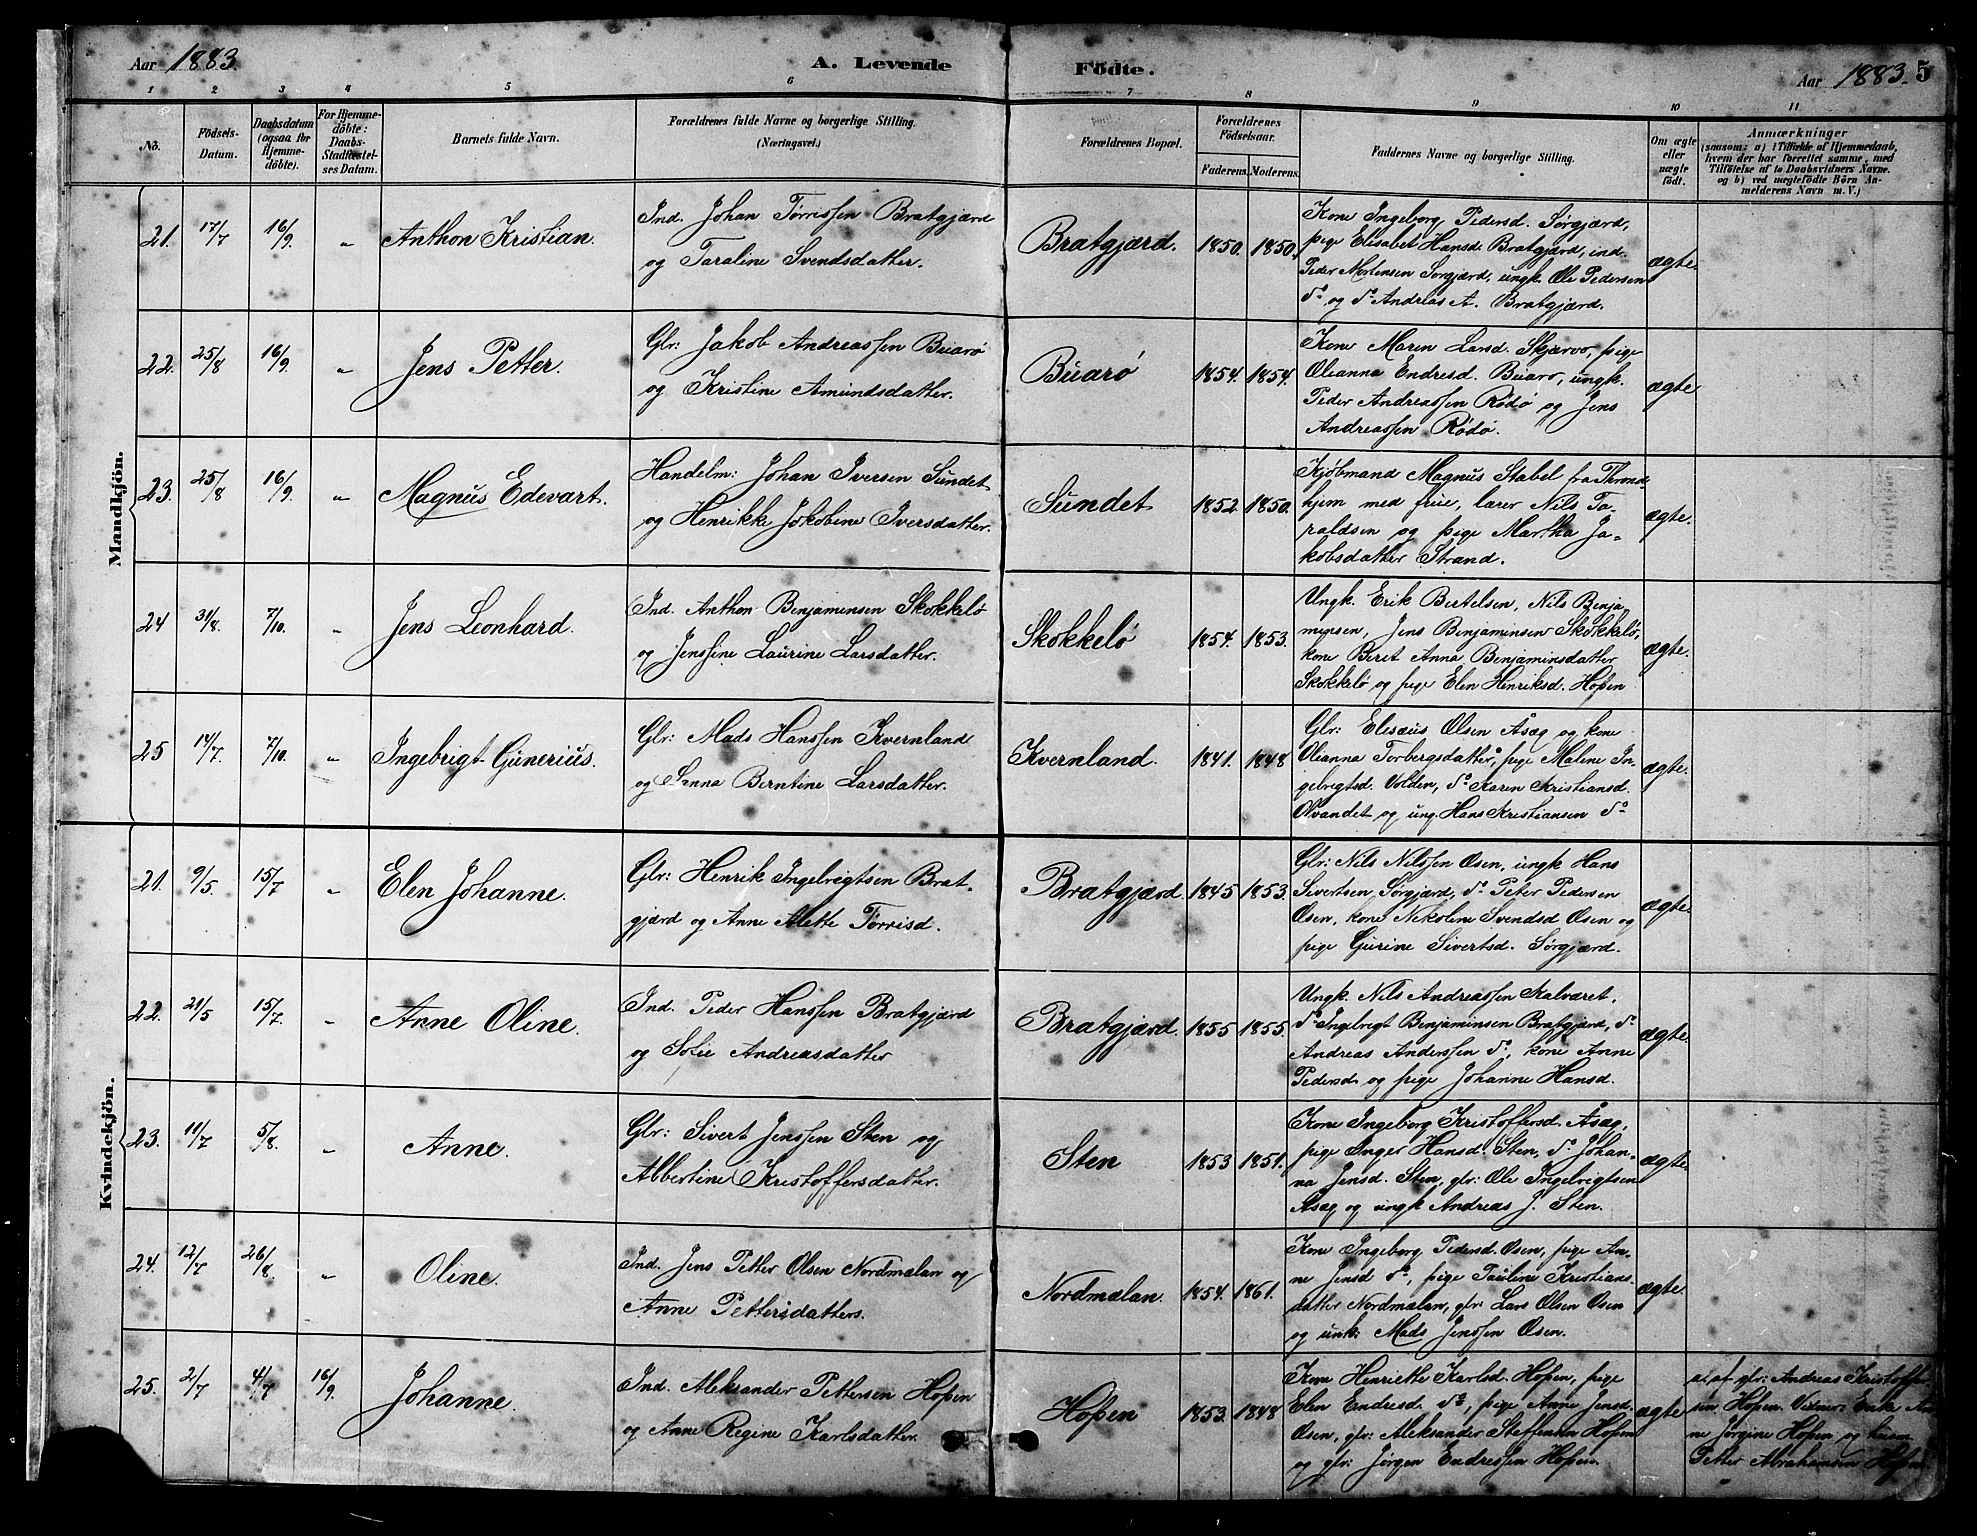 Aar 1883.
A. Levende Födte.
Aar 1883. 5
1 2 3 4 5 6 7 8 9 10 11
No.
Födsels-
Datum.
Daabsdatum
(ogsaa for
Hjemme-
döbte).
For Hjemme-
döbte:
Daabs-
Stadfæstel-
ses Datum.
Barnets fulde Navn.
Forældrenes fulde Navne og borgerlige Stilling.
(Næringsvei.)
Forældrenes Bopæl.
Forældrenes
Födselsaar.
Faderens. Moderens.
Faddernes Navne og borgerlige Stilling.
Om ægte
eller
uægte
födt.
Anmærkninger
(saasom: a) i Tilfælde af Hjemmedaab,
hvem der har forrettet samme, med
Tilföielse af to Daabsvidners Navne.
og b) ved uægtefödte Börn An-
melderens Navn m. V.)
Mandkjön.
21. 17/7 16/9. " Anthon Kristian.
Ind. Johan Tørrissen Bratgjærd
og Taraline Svendsdatter.
Bratgjærd. 1850. 1850.
Kone Ingeborg Pedersd. Sørgjærd,
pige Elisabet Hansd. Bratgjærd, ind.
Peder Mortensen Sørgjærd, ungk. Ole Pedersen
do og do Andreas A. Bratgjærd.
ægte.
22. 25/8 16/9. " Jens Petter.
Glr: Jakob Andreassen Buarø
og Kristine Amundsdatter.
Buarø 1854. 1854.
Kone Maren Larsd. Skjærvø, pige
Oleanna Endresd. Buarø, ungk.
Peder Andreassen Rødø og Jens
Andreassen Rødø.
ægte
23. 25/8 16/9. " Magnus Edevart.
Handelm: Johan Iversen Sundet
og Henrikke Jokobine Iversdatter.
Sundet 1852 1850.
Kjøbmand Magnus Stabel fra Thrond-
hjem med frue, lærer Nils Ta-
raldsen og pige Martha Ja-
kobsdatter Strand.
ægte.
24 31/8. 7/10. " Jens Leonhard.
Ind. Anthon Benjaminsen Skokkelø
og Jenssine Laurine Larsdatter.
Skokkelø 1854. 1853.
Ungk. Erik Bertelsen, Nils Benja
minsen, Jens Benjaminsen Skokkelø,
kone Beret Anna Benjaminsdatter
Skokkelø og pige Elen Henriksd. Hopen
ægte.
25 14/7. 7/10. " Ingebrigt Gunerius.
Glr: Mads Hanssen Kvernland
og Sanna Berntine Larsdatter.
Kvernland. 1841. 1848
Glr: Elisæus Olsen Åsæg og kone
Oleanna Torbergsdatter, pige Maline In-
gebrigtsd. Volden, do Karen Kristiansd.
Olvandet og ung. Hans Kristiansen do
ægte.
Kvindekjön.
21. 9/5 15/7 " Elen Johanne.
Glr: Henrik Ingebrigtsen Brat-
gjærd og Anne Alette Tørrisd.
Bratgjærd. 1845 1853.
Glr: Nils Nilssen Osen, ungk Hans
Sivertsen Sørgjærd, do Peter Pedersen
Osen, kone Nekoline Svendsd Osen og
pige Gurine Sivertsd. Sørgjærd.
ægte.
22. 21/5 15/7. " Anne Oline.
Ind. Peder Hanssen Bratgjærd
og Sofie Andreasdatter
Bratgjærd. 1855 1855.
Ungk. Nils Andreassen Kalværet,
do Ingebrigt Benjaminsen Bratgjærd, do
Andreas Anderssen do, kone Anne
Pedersd. og pige Johanne Hansd.
ægte.
23. 11/7 5/8. " Anne.
Glr: Sivert Jenssen Sten og
Albertine Kristoffersdatter.
Sten 1853 1851.
Kone Ingeborg Kristoffersd. Åsæg,
pige Inger Hansd. Sten, do Johan-
na Jensd. Sten, glr: Ole Ingebrigtsen
Åsæg og ungk Andreas J. Sten.
ægte.
24. 12/7 26/8. " Oline.
Ind. Jens Petter Olsen Nordmælan og
Anne Pettersdatters.
Nordmælan. 1854. 1861.
Kone Ingeborg Pedersd. Osen, pige An-
ne Jensd do, pige Pauline Kristians-
datter Nordmælan, glr: Lars Olsen Osen
og unk: Mads Jenssen Osen.
ægte.
25. 2/7 4/7 16/9. Johanne.
Ind. Aleksander Pettersen Hopen
og Anne Regine Karlsdatter.
Hopen 1853. 1848
Kone Henriette Karlsd. Hopen, pige
Elen Endresd. do, pige Anne Jensd.
Osen, glr: Aleksander Steffensen Hopen
og glr: Jørgen Endressen Hopen.
ægte
a. af glr: Andreas Kristoffer
sen Hopen. Vidner: Enke An
ne Jørgine Hopen og
Petter Abrahamsen Hopen